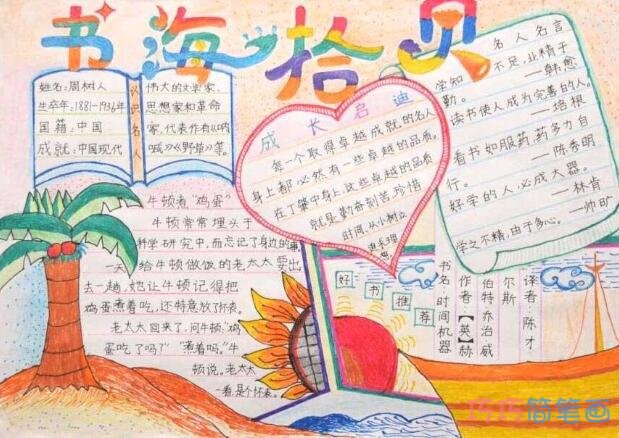 书海拾贝
姓名:周树人
生卒年:1881-1936年
国籍:中国
成就:中国现代
认识名人
伟大的文学家、
思想家和革命
家,代表作有《呐
喊》《野草》等。
成长启迪
每一个取得卓越成就的名人
身上都必然有一些卓越的品质。
在了肇中身上,这些卓越的品质
就是勤奋刻苦珍惜
时间,从小树立
名人名言
学知不足,业精于
勤。
——韩愈
读书使人成为完善的人。
——培根
看书如服药,药多力自
行。
——陈秀明
好学的人必成大器。
——林肯
学之不精,由于多心。
牛顿煮“鸡蛋”
牛顿常常埋头于
科学研究中,而忘记了身边的事
一天给牛顿做饭的老太太要出
去一趟,她让牛顿记得把
鸡蛋煮着吃,还特意放了怀表。
老太太回来了,问牛顿,“鸡
蛋吃了吗?”“煮着吗。”牛
顿说,老太太
一看,是个怀表。
好书推荐
书名:时间机器
作者【英】赫
伯特乔治威
尔斯
译者:陈才
巧巧简笔画